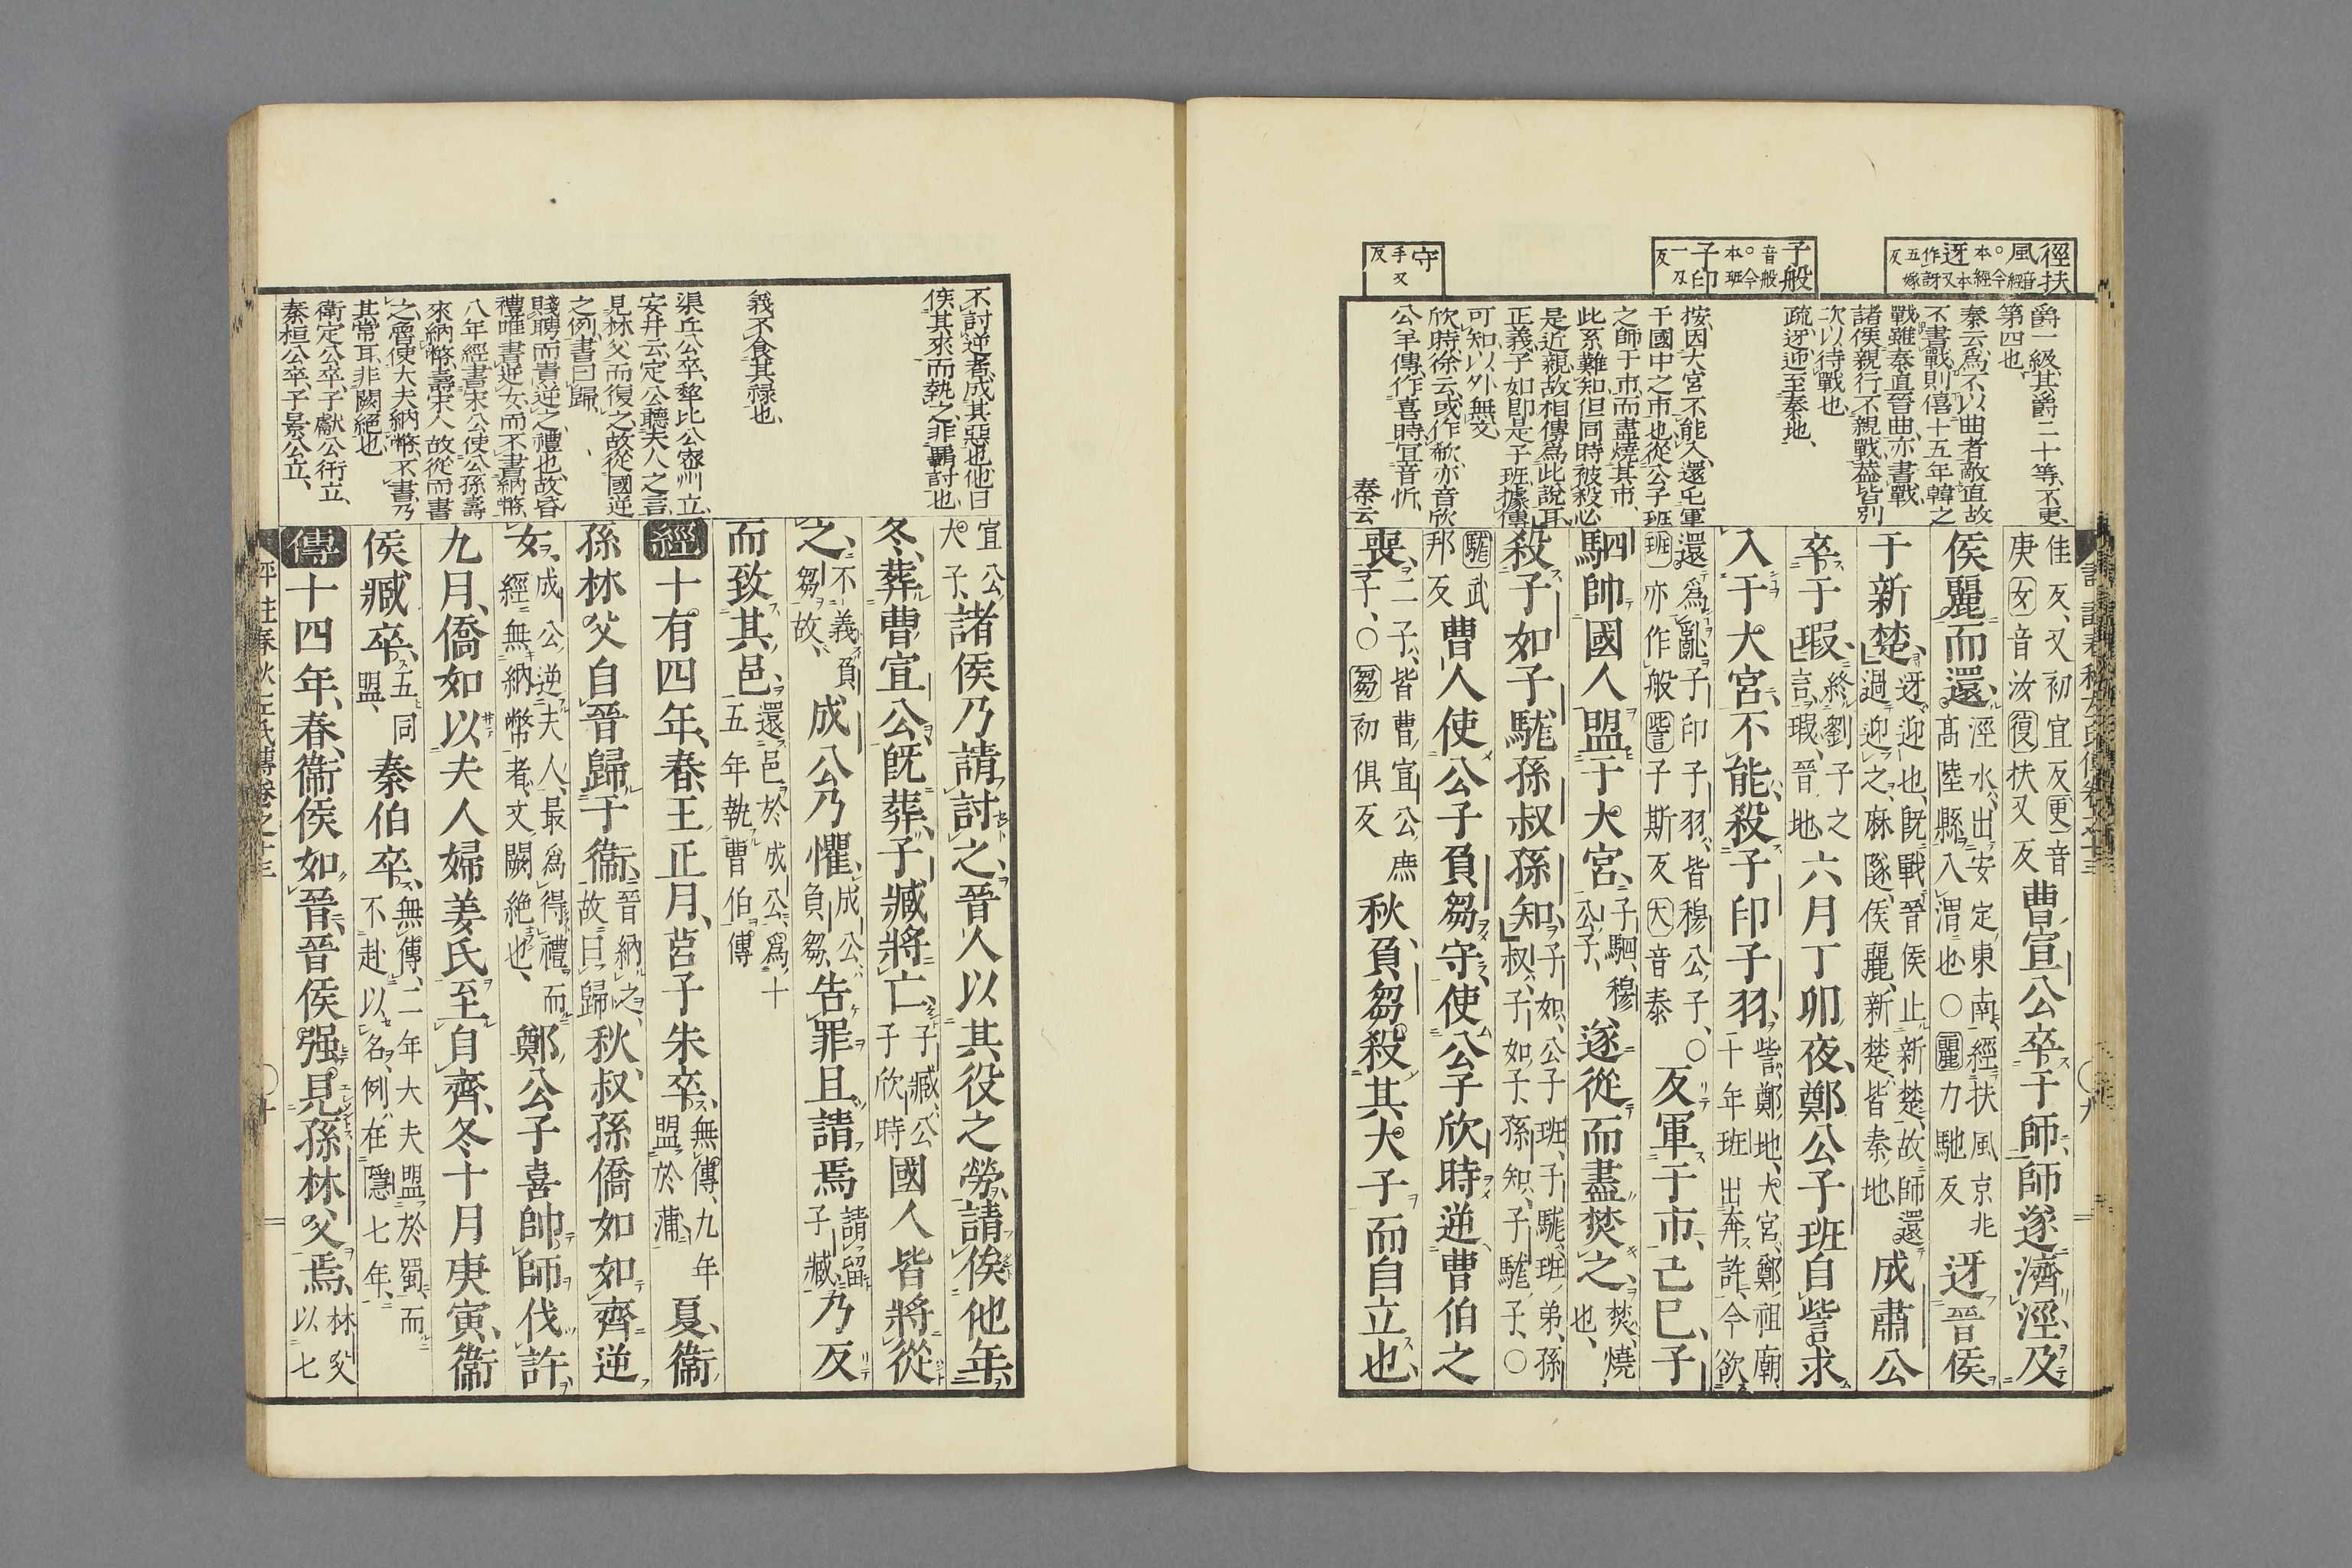 徑扶風○音經今本經迓本又作訝五嫁反
子般○音般今本班子印一刃反
守手又反
爵一級其爵二十等不更
第四也
秦云爲不以曲者敵直故
不書戰則僖十五年韓之
戰雖秦直晉曲亦書戰
諸侯親行不親戰葢皆別
次以待戰也
疏迓迎至秦地
按因大宮不能入還屯軍
于國中之市也從公子班
之師于市而盡燒其市
此系難知但同時被殺必
是近親故相傳爲此說耳
正義子如卽是子班據傳
可知以外無文
欣時徐云或作款亦音欣
公羊傳作喜時宜音忻
秦云
佳反又初宜反更音庚女音汝復扶又反曹宣公卒于師師遂濟涇及
侯麗而還涇水出安定東南經扶風京兆高陸縣入渭也○麗力馳反迓晉侯
于新楚迓迎也旣戰晉侯止新楚故師還過迎之麻隧侯麗新楚皆秦地成肅公
卒于瑕終劉子之言瑕晉地六月丁卯夜鄭公子班自訾求
入于大宮不能殺子印子羽訾鄭地大宮鄭祖廟十年班出奔許今欲
還爲亂子印子羽皆穆公子○班亦作般訾子斯反大音泰反軍于市己巳子
駟帥國人盟于大宮子駟穆公子遂從而盡焚之焚燒也
殺子如子駹孫叔孫知子如公子班子駹班弟孫叔子如子孫知子駹子○
駹武邦反曹人使公子負芻守使公子欣時逆曹伯之
喪二子皆曹宣公庶子○芻初俱反秋負芻殺其大子而自立也
不討逆者成其惡也他日
侯其來而執之非覇討也
義不食其祿也
渠丘公卒犂比公密州立
安井云定公聽夫人之言
見林父而復之故從國逆
之例書曰歸
賤聘而貴逆之禮也故昏
禮唯書逆女而不書納幣
八年經書宋公使公孫壽
來納幣壽宋人故從而書
之魯使大夫納幣不書乃
其常耳非闕絕也
衛定公卒子獻公衎立
秦桓公卒子景公立
宣公大子諸侯乃請討之晉人以其役之勞請俟他年
冬葬曹宣公旣葬子臧將亡子臧公子欣時國人皆將從
之不義負芻故成公乃懼成公負芻告罪且請焉請留子臧乃反
而致其邑還邑於成公爲十五年執曹伯傳
經十有四年春王正月莒子朱卒無傳九年盟於蒲夏衞
孫林父自晉歸于衞晉納之故曰歸秋叔孫僑如如齊逆
女成公逆夫人最爲得禮而經無納幣者文闕絕也鄭公子喜帥師伐許
九月僑如以夫人婦姜氏至自齊冬十月庚寅衞
侯臧卒五同盟秦伯卒無傳二年大夫盟於蜀而不赴以名例在隱七年
傳十四年春衞侯如晉晉侯强見孫林父焉林父以七